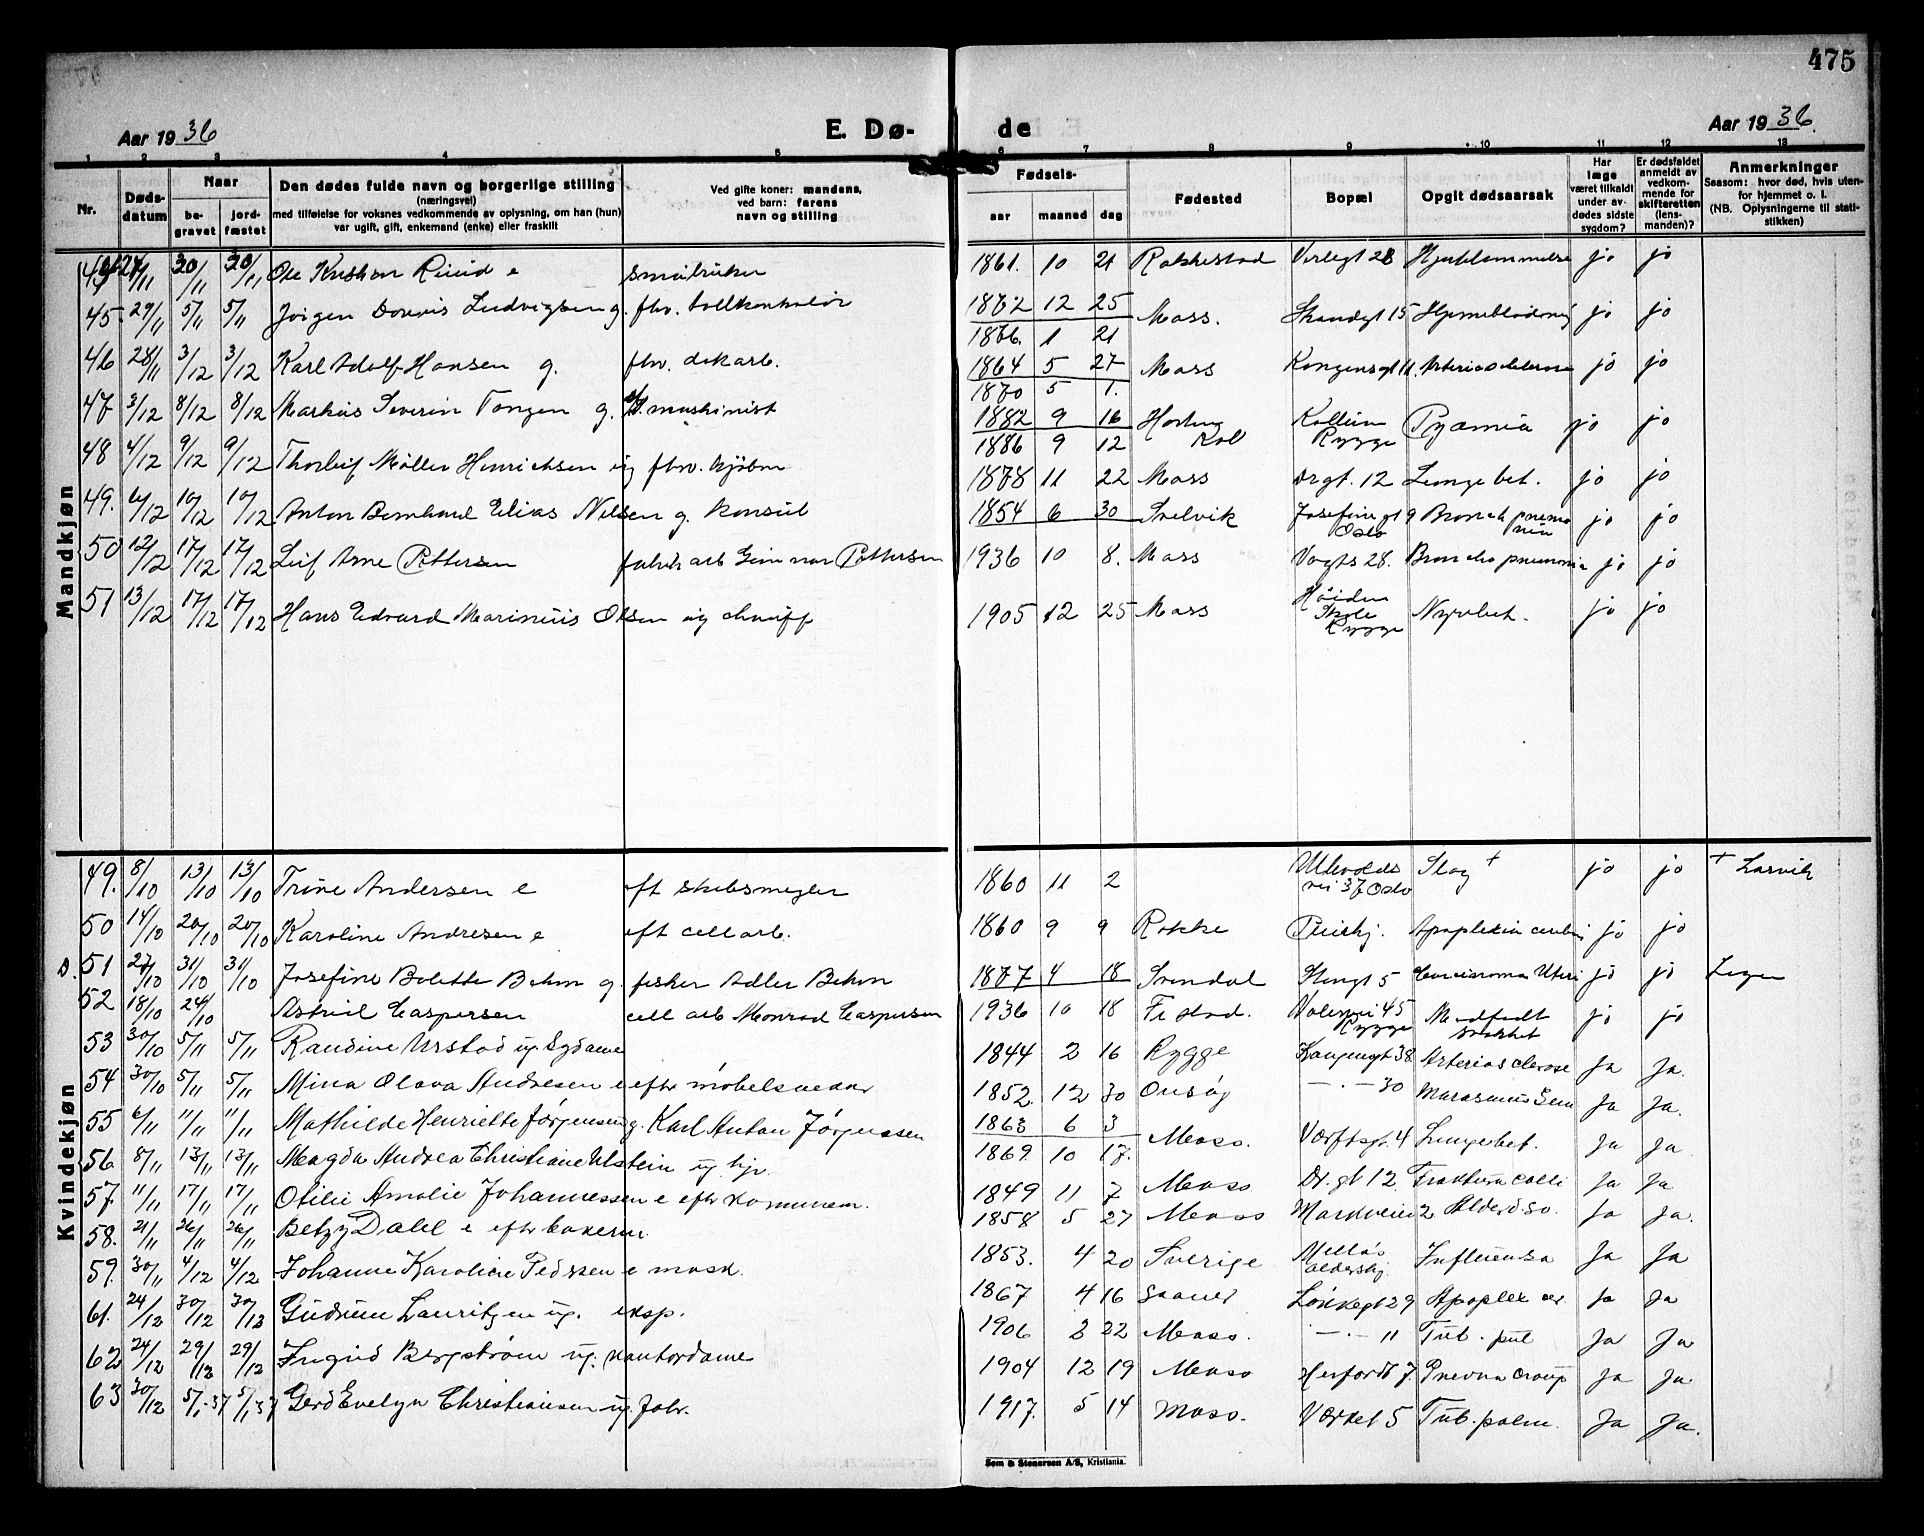 475
Aar 1936
E. Dø-
de
Aar 1936.
1 2 3 4 5 6 7 8 9 10 11 12 13
Nr.
Døds-
datum
Naar
be-
gravet
jord-
fæstet
Den dødes fulde navn og borgerlige stilling
(næringsvei)
med tilføielse for voksnes vedkommende av oplysning, om han (hun)
var ugift, gift, enkemand (enke) eller fraskilt
Ved gifte koner: mandens,
ved barn: farens
navn og stilling
Fødsels-
aar maaned dag
Fødested
Bopæl
Opgit dødsaarsak
Har
læge
været tilkaldt
under av-
dødes sidste
sygdom?
Er dødsfaldet
anmeldt av
vedkom-
mende for
skifteretten
(lens-
manden)?
Anmerkninger
Saasom: hvor død, hvis uten-
for hjemmet o. l.
(NB. Oplysningerne til stati-
stikken)
Mandkjøn
27/11 20/11 20/11 Ole Kristian Ruud e småbruker 1861. 10 21 Rakkestad Verlegt 28 Hjerklammelse jo jo
45. 29/11 5/11 5/11 Jörgen Dorvis Ludvigsen g. fhv. tollkontrolör 1862 12 25 Moss. Strandgt 15 Hjerneblødning jo jo
1866. 1 21
46 28/11 3/12 3/12 Karl Adolf Hansen g. fhv. dokarb. 1864 5 27 Moss Kongensgt 11. Arteriosclerose jo jo
1870 5 1.
47 3/12 8/12 8/12 Markus Severin Tongen g. maskinist 1882 9 16 Kollium Rygge Pyæmia jo jo
1886 9 12
48 4/12 9/12 9/12 Thorleif Möller Henrichsen ug fhv. kjöbm 1878 11 22 Moss Drgt. 12 Lungebet. jo jo
49. 6/12 10/12 10/12 Anton Bernhard Elias Nilsen g. konsul 1854 6 30 Svelvik Josefinegt 9 Oslo Bronchpneumonia jo jo
50 12/12 17/12 17/12 Leif Arne Pettersen fabrikarb Gunnar Pettersen 1936 10 8. Moss Vogts 28. Bronchopneumonia jo jo
51 13/12 17/12 17/12 Hans Edvard Marinius Olsen ug chauff 1905 12 25 Moss Höiden Skole Rygge Nyrebet. jo jo
Kvindekjøn
49. 8/10 13/10 13/10 Trine Andersen e eft skibsmegler 1860 11 2 Ullevolds vei 37 Oslo Slag + jo jo + Larvik
50 14/10 20/10 20/10 Karoline Andresen e eft cellarb. 1860 9 9 Rokke Pleiehj. Apoplexia cerebri jo jo
51 27/10 31/10 31/10 Josefine Bolette Behm g. fisker Adler Behm 1877 4 18 Svendal Stengt 5 Carcinoma Uteri jo jo
52 18/10 24/10 Astrid Caspersen cell arb Monrad Caspersen 1936 10 18 Vålervei 45 Rygge Medfödt svakhet jo jo
53 30/10 5/11 5/11 Randine Urstad ug Sydame 1844 2 16 Rygge Kongensgt 38. Arteriosclerose Ja Ja.
54 30/10 5/11 5/11 Mina Olava Andresen e efter möbelsnekker 1852. 12 30 Onsöy — . — 30 Marasmus Sen Ja Ja.
55 6/11 11/11 11/11 Mathilde Henriette Jörgensen g. Karl Anton Jörgensen 1863 6 3 Moss. Værftsgt. 4 Lungebet. Ja Ja.
1869. 10 17.
56. 8/11 13/11 13/11 Magda Andrea Christiane Ulstein ug hjp. 1849 11 7 Moss Dr. gt 12. Fraktura colli Ja Ja
57. 11/11 17/11 17/11 Otilie Amalie Johannessen e efter kommunem. 1858 5 27 Moss Markveien 2 Alderd.so. Ja Ja.
58. 21/11 26/11 26/11 Betzy Dahl e efter bakerm. 1853. 4 20 Sverige Melløs aldershj. Influensa Ja Ja
59. 30/11 4/12 4/12 Johanne Karoline Pedersen e mask. 1867 4 16 Saaner Lökkegt 29 Apoplex cer. Ja Ja
61. 24/12 30/12 30/12 Gudrun Lauritzen ug. eksp. 1906 2 22 Moss. — . — 11 Tub. pul Ja Ja
62 24/12 29/12 29/12 Ingrid Bergström ug. kontordame 1904 12 19 Moss Herfordt 7. Pneuma croup Ja Ja
63 30/12 5/1-37 5/1-37 Gerd Evelyn Christiansen ug. Fabr. 1917. 5 14 Moss. Værket 5 Tub. polm. Ja Ja.
Sem & Stenersen A/S, Kristiania.